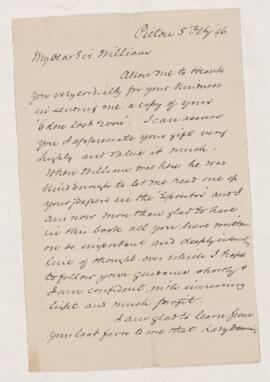 Pictou 5th Feby 96
My dear Sir William
Allow me to thank
you very cordially for your kindness
in sending me a copy of your
"Eden Lost & Won". I can assure
you I appreciate your gift very
highly and value it much.
When William was here he was
kind enough to let me read one of
your papers in the "Expositor" and I
am now more than glad to have
in this book all you have written
on so important and deeply interesting
line of thought, over which I hope
to follow your guidance shortly &
I am confident, with increasing
light and much profit.
I am glad to learn from
your last favor to me that Lady Dawson